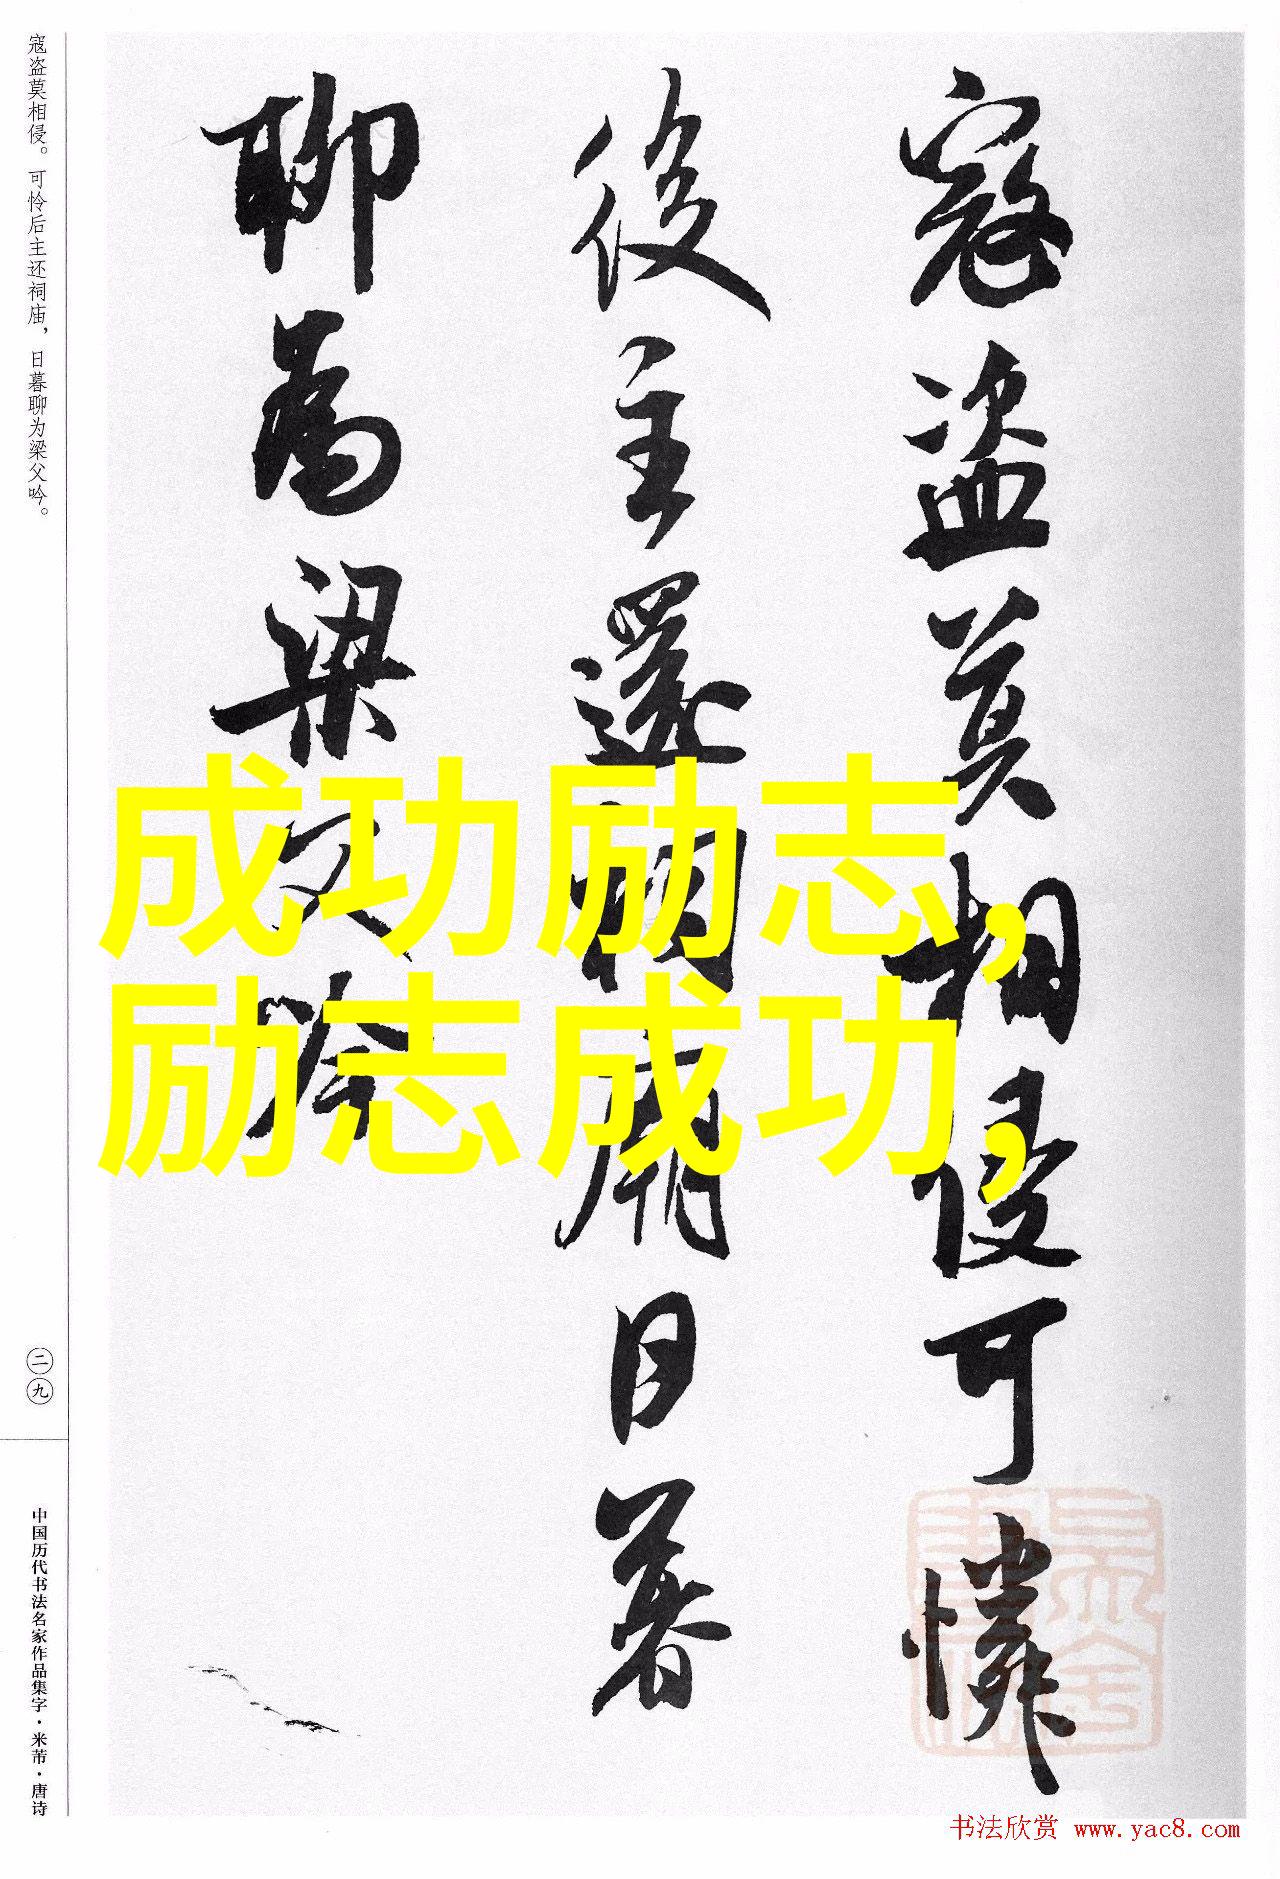 寇盗莫相侵。可怜后主还祠庙，日暮聊为梁父吟。
寇盗莫相侵可憐
後主還祠廟日暮
聊為梁父吟
成功励志，
励志成功，
二九
中国历代书法名家作品集字·米芾·唐诗
书法欣赏 www.yac8.com